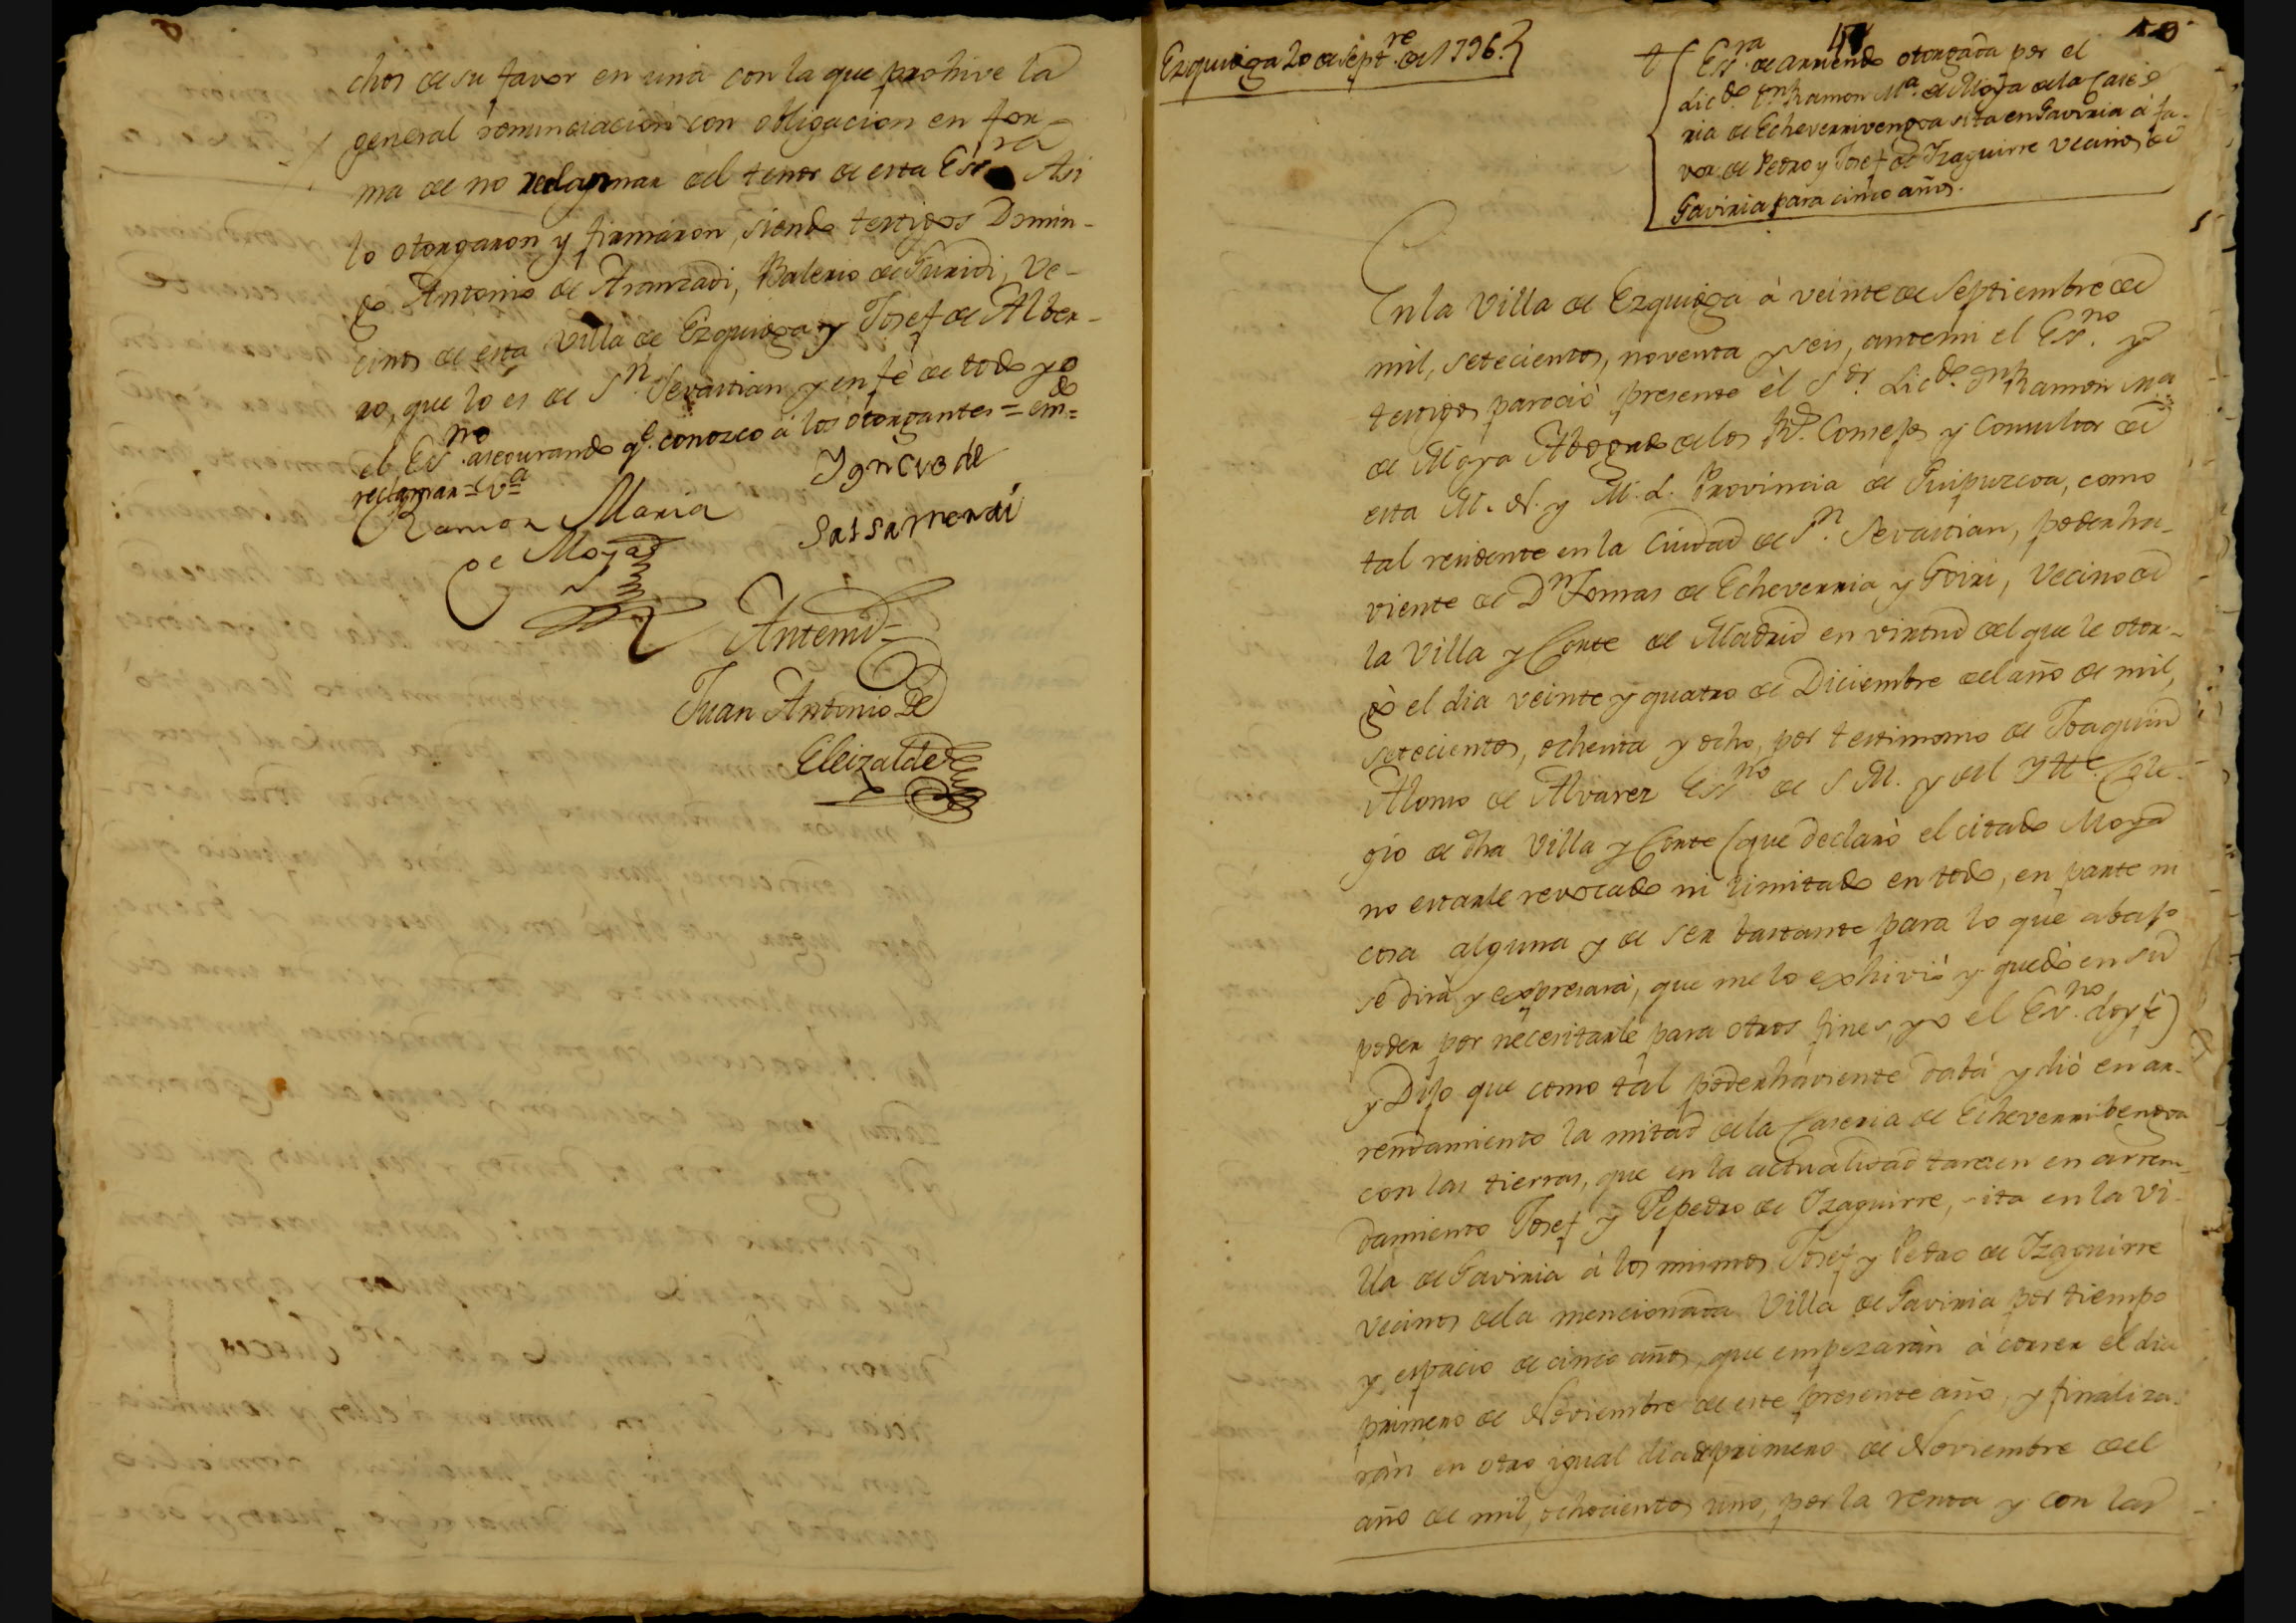 chos de su favor en una con la que prohive la
general renunciacion con obligacion en for-
ma de no reclamar del tenor de esta Essra Asi
lo otorgaron y firmaron, siendo testigos Domin-
go Antonio de Aranzadi, Balerio de Guridi, Ve-
cinos de esta Villa de Ezquioga y Josef de Alber-
ro, que lo es de Sn. Sevastian, y en fè de todo yo
el Essno. asegurando qe. conozco a los otorgantes = emdo=
reclamar = va
Ramon Maria
de Moya
Ygncio de
Satsamendi
Antemi
Juan Antonio de
Eleizalde
Ezquioga 20 de Septre. de 1796.
47
Essra. de arriendo otorgada por el
Licdo. Dn. Ramon Ma. de Moya de la Case-
ria de Echeverrivengoa sita en Gaviria à fa-
vor de Pedro y Josef de Yzaguirre vecinos de
Gaviria para cinco años.
En la Villa de Ezquioga à veinte de Septiembre de
mil, setecientos, noventa y seis, antemi el Essno. y
testigos pareciò presente èl Sor. Licdo. Dn. Ramon Ma.
de Moya Abogado de los Rs. Consejos y Consultor de
esta M. N. y M. L. Provincia de Guipuzcoa, como
tal residente en la Ciudad de Sn. Sevastian, poderha-
viente de Dn Tomas de Echeverria y Goiri, Vecino de
la Villa y Corte de Madrid en virtud del que le otor-
gò el dia veinte y quatro de Diciembre del año de mil,
setecientos, ochenta y ocho, por testimonio de Joaquin
Alonso de Alvarez Essno de S M. y del Ytte. Cole-
gio de dha Villa y Corte (que declarò el citado Moya
no estarle revocado ni limitado en todo, en parte ni
cosa alguna y de ser bastante para lo que abajo
se dirà y expresarà, que me lo exhiviò y quedò en su
poder por necesitarle para otros fines, yo el Esno. doy fè)
y Dijo que como tàl poderhaviente dabà y diò en ar-
rendamiento la mitad de la Caseria de Echeverribengoa
con las tierras, que en la actualidad tareen en arren-
damiento Josef y Pepedro de Yzaguirre, sita en la Vi-
lla de Gaviria à los mismos Josef y Pedro de Yzaguirre
vecinos de la mencionada Villa de Gaviria por tiempo
y espacio de cinco años, que empezaràn à correr el dia
primero de Noviembre de este presente año, y finaliza-
ràn en otro igual dia primero de Noviembre del
año de mil, ochocientos uno, por la renta y con las